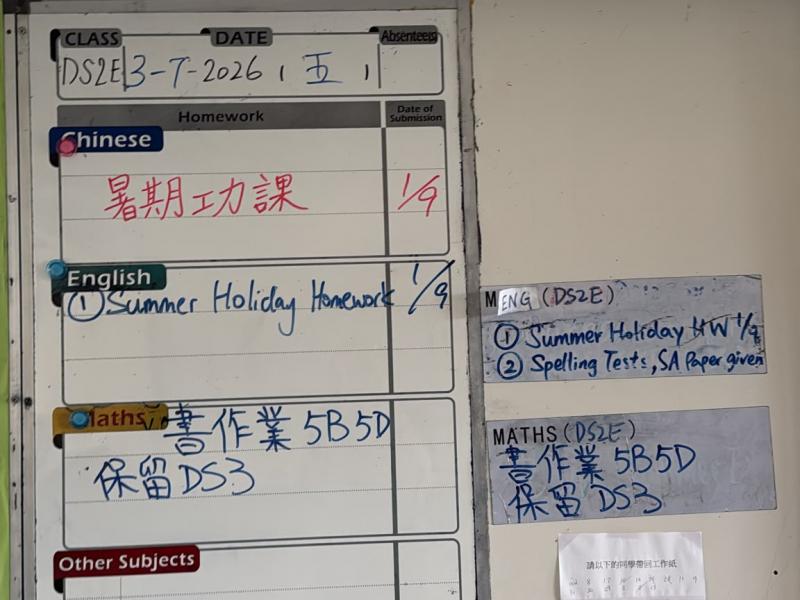 CLASS DATE Absentee(s)
DS2E 3-7-2026 ( 五 )
Homework Date of Submission
Chinese
暑期工力課 1/9
English
① Summer Holiday Homework 1/9
Maths
書作業 5B 5D
保留 DS3
Other Subjects
ENG (DS2E)
① Summer Holiday HW 1/9
② Spelling Tests, SA Paper given
MATHS (DS2E)
書作業 5B 5D
保留 DS3
請以下的同學帶回工作紙